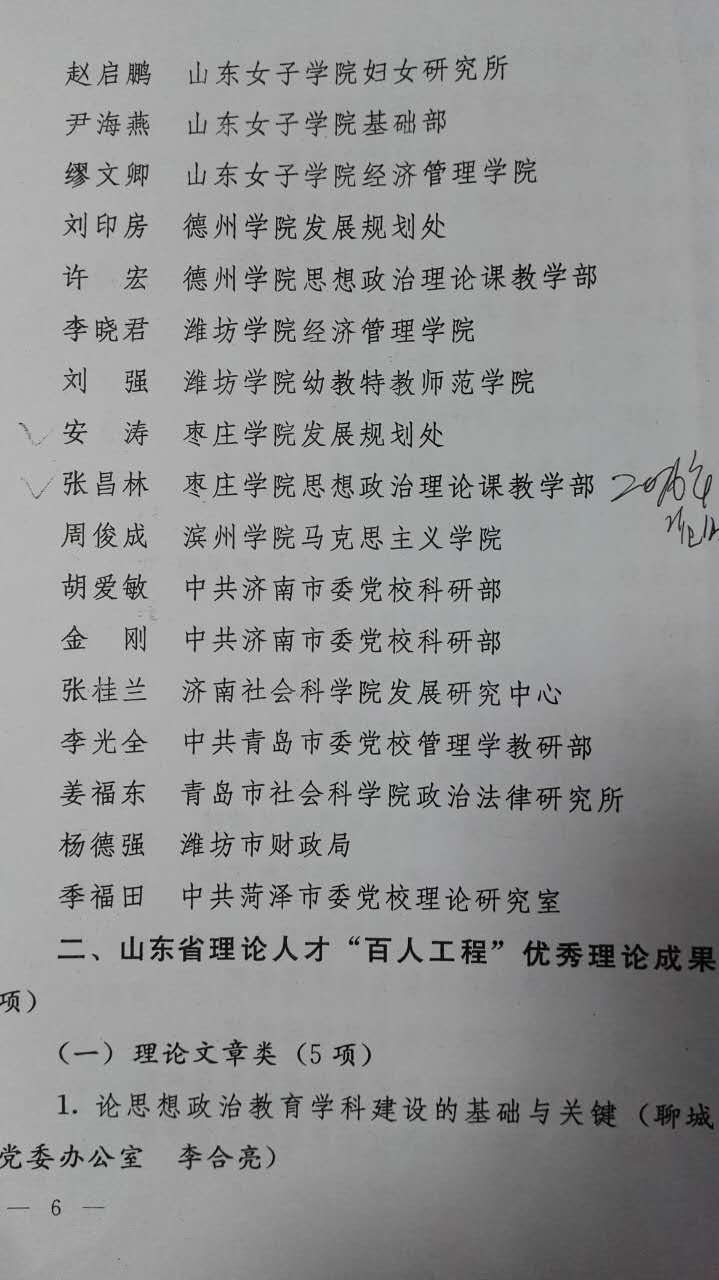 赵启鹏 山东女子学院妇女研究所
尹海燕 山东女子学院基础部
缪文卿 山东女子学院经济管理学院
刘印房 德州学院发展规划处
许 宏 德州学院思想政治理论课教学部
李晓君 潍坊学院经济管理学院
刘 强 潍坊学院幼教特教师范学院
安 涛 枣庄学院发展规划处
张昌林 枣庄学院思想政治理论课教学部
周俊成 滨州学院马克思主义学院
胡爱敏 中共济南市委党校科研部
金 刚 中共济南市委党校科研部
张桂兰 济南社会科学院发展研究中心
李光全 中共青岛市委党校管理学教研部
姜福东 青岛市社会科学院政治法律研究所
杨德强 潍坊市财政局
季福田 中共菏泽市委党校理论研究室
二、山东省理论人才“百人工程”优秀理论成果
项）
（一）理论文章类（5项）
1. 论思想政治教育学科建设的基础与关键（聊城
党委办公室 李合亮）
— 6 —